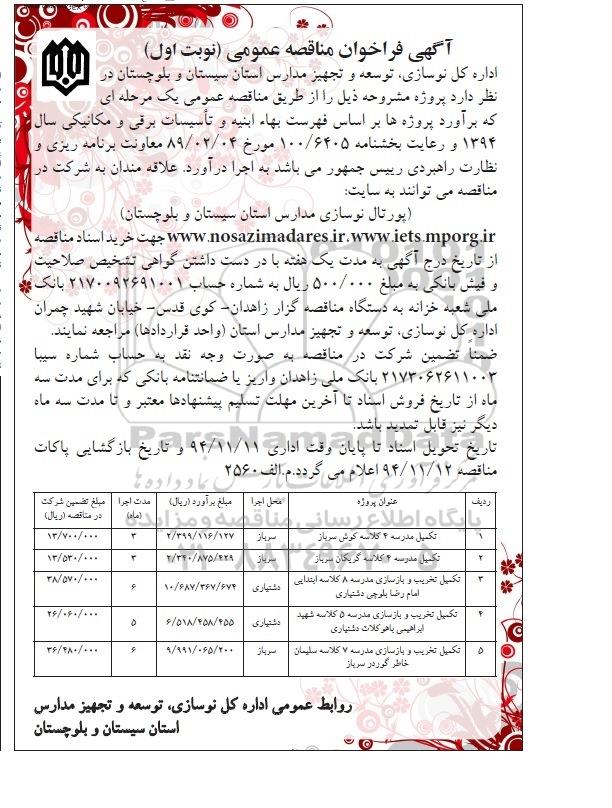 آگهی فراخوان مناقصه عمومی (نوبت اول)
اداره کل نوسازی، توسعه و تجهیز مدارس استان سیستان و بلوچستان در
نظر دارد پروژه مشروحه ذیل را از طریق مناقصه عمومی یک مرحله ای
که برآورد پروژه ها بر اساس فهرست بهاء ابنیه و تأسیسات برقی و مکانیکی سال
۱۳۹۴ و رعایت بخشنامه ۱۰۰/۶۴۰۵ مورخ ۸۹/۰۲/۰۴ معاونت برنامه ریزی و
نظارت راهبردی رییس جمهور می باشد به اجرا درآورد. علاقه مندان به شرکت در
مناقصه می توانند به سایت:
(پورتال نوسازی مدارس استان سیستان و بلوچستان)
www.nosazimadares.ir.www.iets.mporg.ir جهت خرید اسناد مناقصه
از تاریخ درج آگهی به مدت یک هفته با در دست داشتن گواهی تشخیص صلاحیت
و فیش بانکی به مبلغ ۵۰۰/۰۰۰ ریال به شماره حساب ۲۱۷۰۰۹۲۶۹۱۰۰۱ بانک
ملی شعبه خزانه به دستگاه مناقصه گزار زاهدان- کوی قدس- خیابان شهید چمران
اداره کل نوسازی، توسعه و تجهیز مدارس استان (واحد قراردادها) مراجعه نمایند.
ضمناً تضمین شرکت در مناقصه به صورت وجه نقد به حساب شماره سیبا
۲۱۷۳۰۶۲۶۱۱۰۰۳ بانک ملی زاهدان واریز یا ضمانتنامه بانکی که برای مدت سه
ماه از تاریخ فروش اسناد تا آخرین مهلت تسلیم پیشنهادها معتبر و تا مدت سه ماه
دیگر نیز قابل تمدید باشد.
تاریخ تحویل اسناد تا پایان وقت اداری ۹۴/۱۱/۱۱ و تاریخ بازگشایی پاکات
مناقصه ۹۴/۱۱/۱۲ اعلام می گردد.م.الف۲۵۶۰
ردیف عنوان پروژه محل اجرا مبلغ برآورد (ریال) مدت اجرا (ماه) مبلغ تضمین شرکت در مناقصه (ریال)
۱ تکمیل مدرسه ۴ کلاسه کوش سرباز سرباز ۲/۳۹۹/۱۱۶/۱۲۷ ۳ ۱۳/۷۰۰/۰۰۰
۲ تکمیل مدرسه ۴ کلاسه گریکان سرباز سرباز ۲/۳۴۰/۸۷۵/۴۲۹ ۳ ۱۳/۵۳۰/۰۰۰
۳ تکمیل تخریب و بازسازی مدرسه ۸ کلاسه ابتدایی امام رضا بلوچی دشتیاری دشتیاری ۱۰/۶۸۷/۳۶۷/۶۷۴ ۶ ۳۸/۵۷۰/۰۰۰
۴ تکمیل تخریب و بازسازی مدرسه ۵ کلاسه شهید ابراهیمی باهوکلات دشتیاری دشتیاری ۶/۵۱۸/۴۵۸/۴۵۵ ۵ ۲۶/۰۶۰/۰۰۰
۵ تکمیل تخریب و بازسازی مدرسه ۷ کلاسه سلیمان خاطر گوردر سرباز سرباز ۹/۹۹۱/۰۶۵/۲۰۰ ۶ ۳۶/۴۸۰/۰۰۰
روابط عمومی اداره کل نوسازی، توسعه و تجهیز مدارس
استان سیستان و بلوچستان
ParsNamadData
پایگاه اطلاع رسانی مناقصه و مزایده